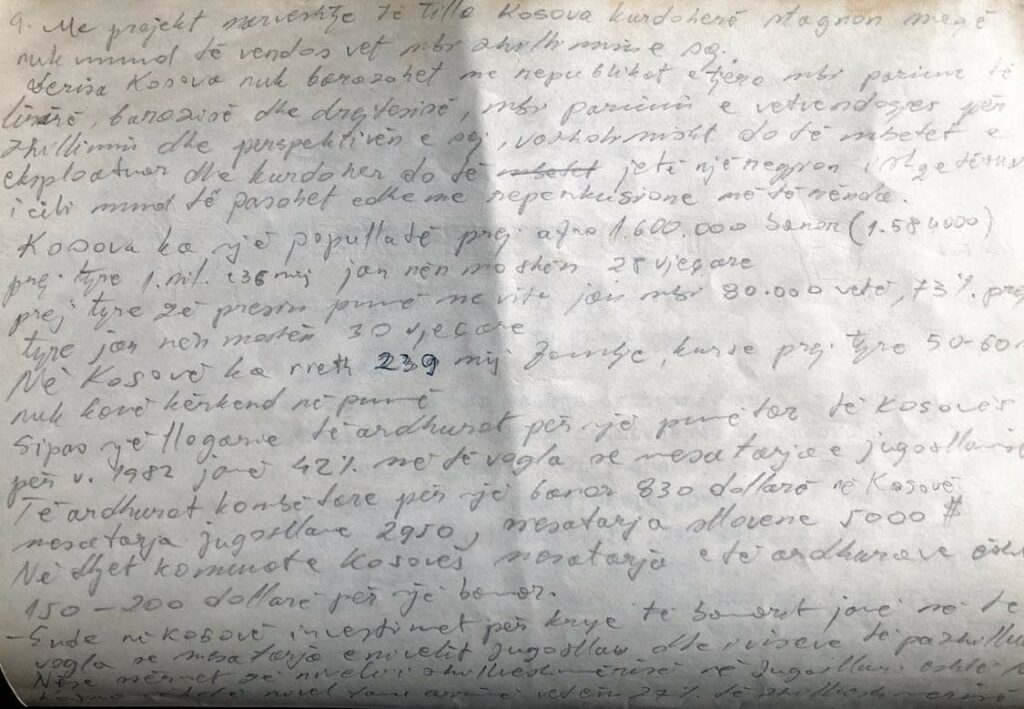 9. Me projekt marveshtje të tilla Kosova kurdoherë stagnon megë
nuk mund të vendos vet mbi zhvillimin e saj.
Derisa Kosova nuk barazohet me republikat e tjera mbi parime të
lirisë, barazisë dhe drejtësisë, mbi parimin e vetvendosjes për
zhvillimin dhe perspektivën e saj, vazhdimisht do të mbetet e
eksploatuar dhe kurdoher do të mbetet jetë një negjion
i cili mund të pasohet edhe me reperkusione më të rënda.
Kosova ka një popullatë prej afro 1.600.000 banor (1.584000)
prej tyre 1. mil. e 36 mij jan nën moshën 28 vjeçare
prej tyre që presin punë ne vite jan mbi 80.000 vetë, 73% prej
tyre jan nën moshën 30 vjeçare
Në Kosovë ka rreth 239 mij familje, kurse prej tyre 50-60
nuk kanë kërkend në punë
Sipas një llogarie të ardhurat për një punëtor të Kosovës
për v. 1982 janë 42% më të vogla se mesatarja e jugosllave
Të ardhurat kombëtare për një banor 830 dollarë në Kosovë
mesatarja jugosllave 2950, mesatarja sllovene 5000 #
Në dhjet komunat e Kosovës mesatarja e të ardhurave është
150 – 200 dollarë për një banor.
– Ende në Kosovë investimet për krye të banorit janë më të
vogla se mesatarja e nivelit Jugosllav dhe viseve të pazhvilluara
Nëse merret që niveli i zhvillueshmërisë në Jugosllavi është
nivel vetëm 27% të zhvillueshmërisë